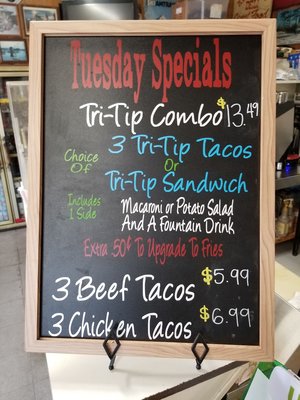 Tuesday Specials
Tri-Tip Combo $13.49
Choice Of
3 Tri-Tip Tacos
Or
Tri-Tip Sandwich
Includes 1 Side
Macaroni or Potato Salad
And A Fountain Drink
Extra 50¢ To Upgrade To Fries
3 Beef Tacos $5.99
3 Chicken Tacos $6.99